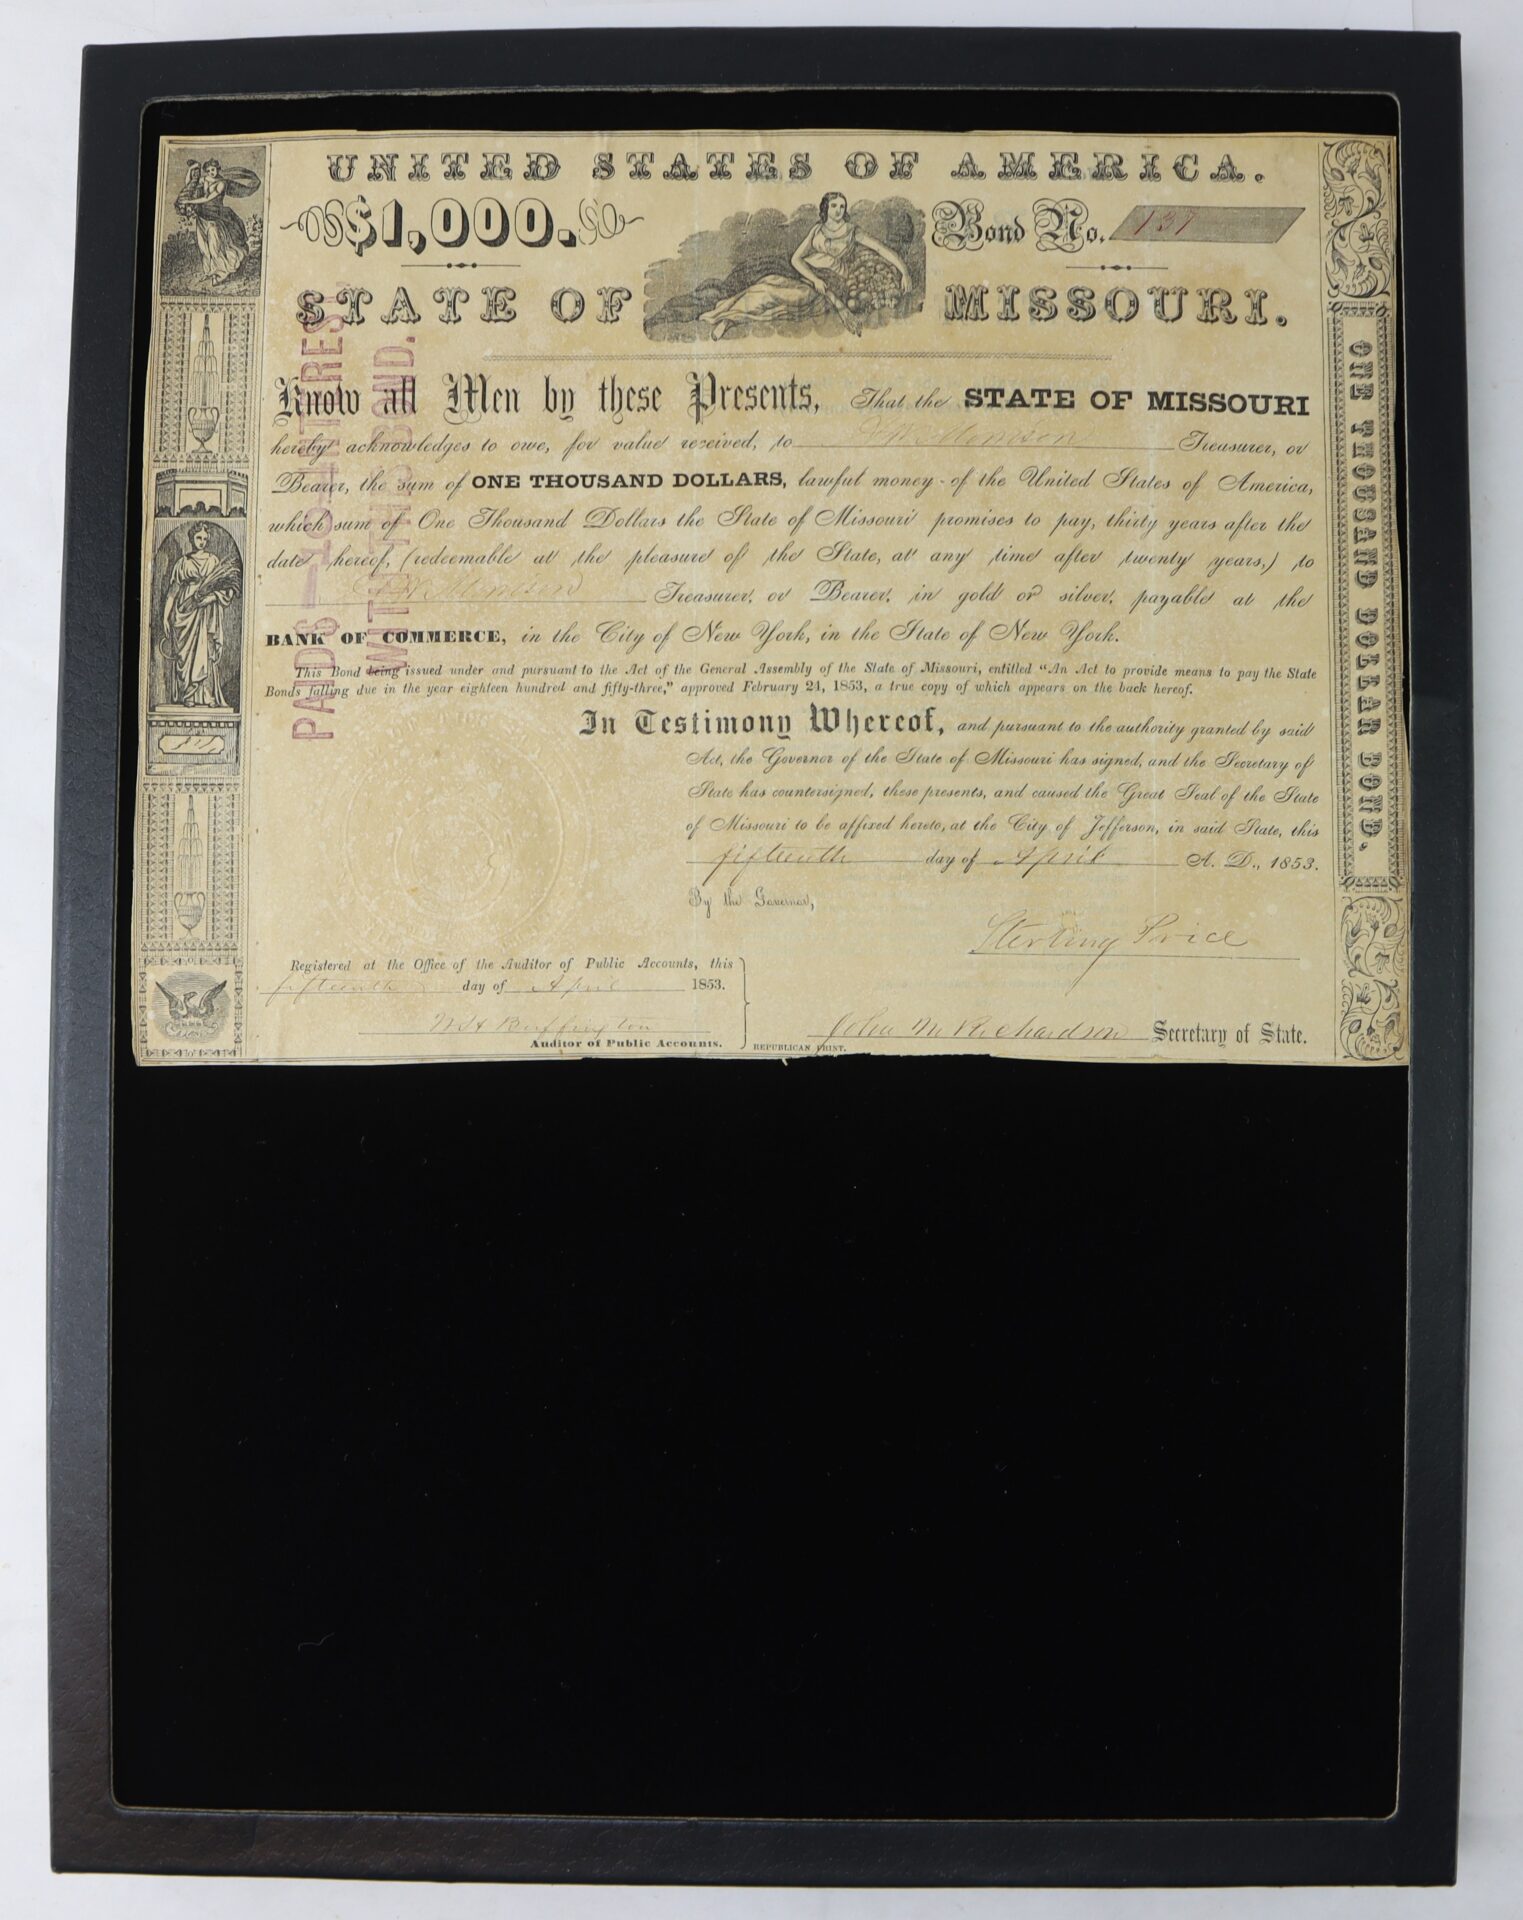 UNITED STATES OF AMERICA.
$1,000.
Bond No. 137
STATE OF MISSOURI.
Know all Men by these Presents, That the STATE OF MISSOURI
hereby acknowledges to owe, for value received, to Treasurer, or
Bearer, the sum of ONE THOUSAND DOLLARS, lawful money of the United States of America,
which sum of One Thousand Dollars the State of Missouri promises to pay, thirty years after the
date hereof, (redeemable at the pleasure of the State, at any time after twenty years,) to
Treasurer, or Bearer, in gold or silver, payable at the
BANK OF COMMERCE, in the City of New York, in the State of New York.
This Bond being issued under and pursuant to the Act of the General Assembly of the State of Missouri, entitled “An Act to provide means to pay the State
Bonds falling due in the year eighteen hundred and fifty-three,” approved February 24, 1853, a true copy of which appears on the back hereof.
In Testimony Whereof, and pursuant to the authority granted by said
Act, the Governor of the State of Missouri has signed, and the Secretary of
State has countersigned, these presents, and caused the Great Seal of the State
of Missouri to be affixed hereto, at the City of Jefferson, in said State, this
fifteenth day of April A. D., 1853.
By the Governor,
Sterling Price
Registered at the Office of the Auditor of Public Accounts, this
fifteenth day of April 1853.
Wm H Buffington
Auditor of Public Accounts.
REPUBLICAN PRINT.
John M. Richardson Secretary of State.
ONE THOUSAND DOLLAR BOND.
PAID INTEREST
WITH BOND.